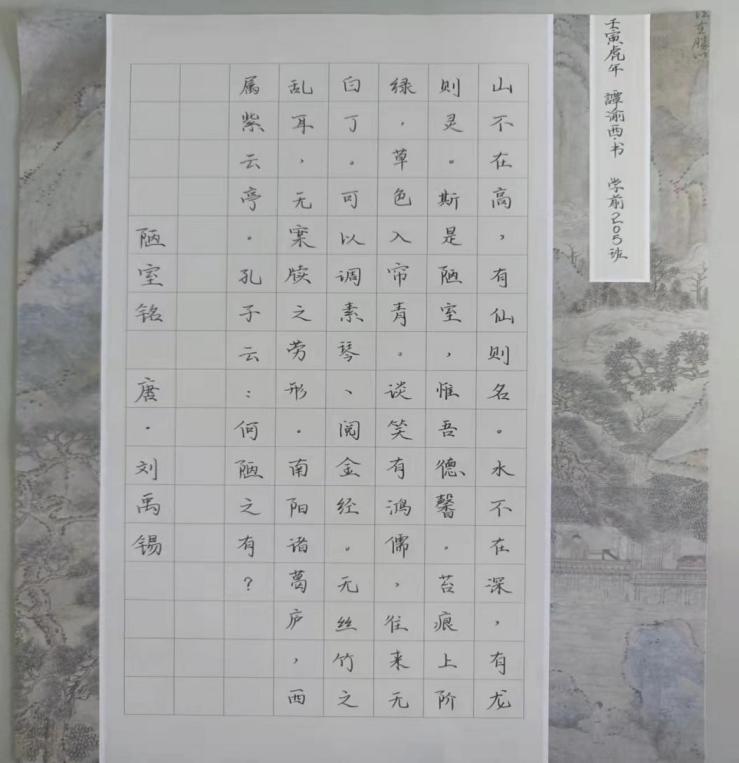 壬寅虎年 譚渝西·书 学前205班
山不在高，有仙则名。水不在深，有龙
则灵。斯是陋室，惟吾德馨．苔痕上阶
绿，草色入帘青。谈笑有鸿儒，往来无
白丁。可以调素琴、阅金经。无丝竹之
乱耳，无案牍之劳形．南阳诸葛庐，西
属紫云亭．孔子云：何陋之有？
陋室铭 唐·刘禹锡